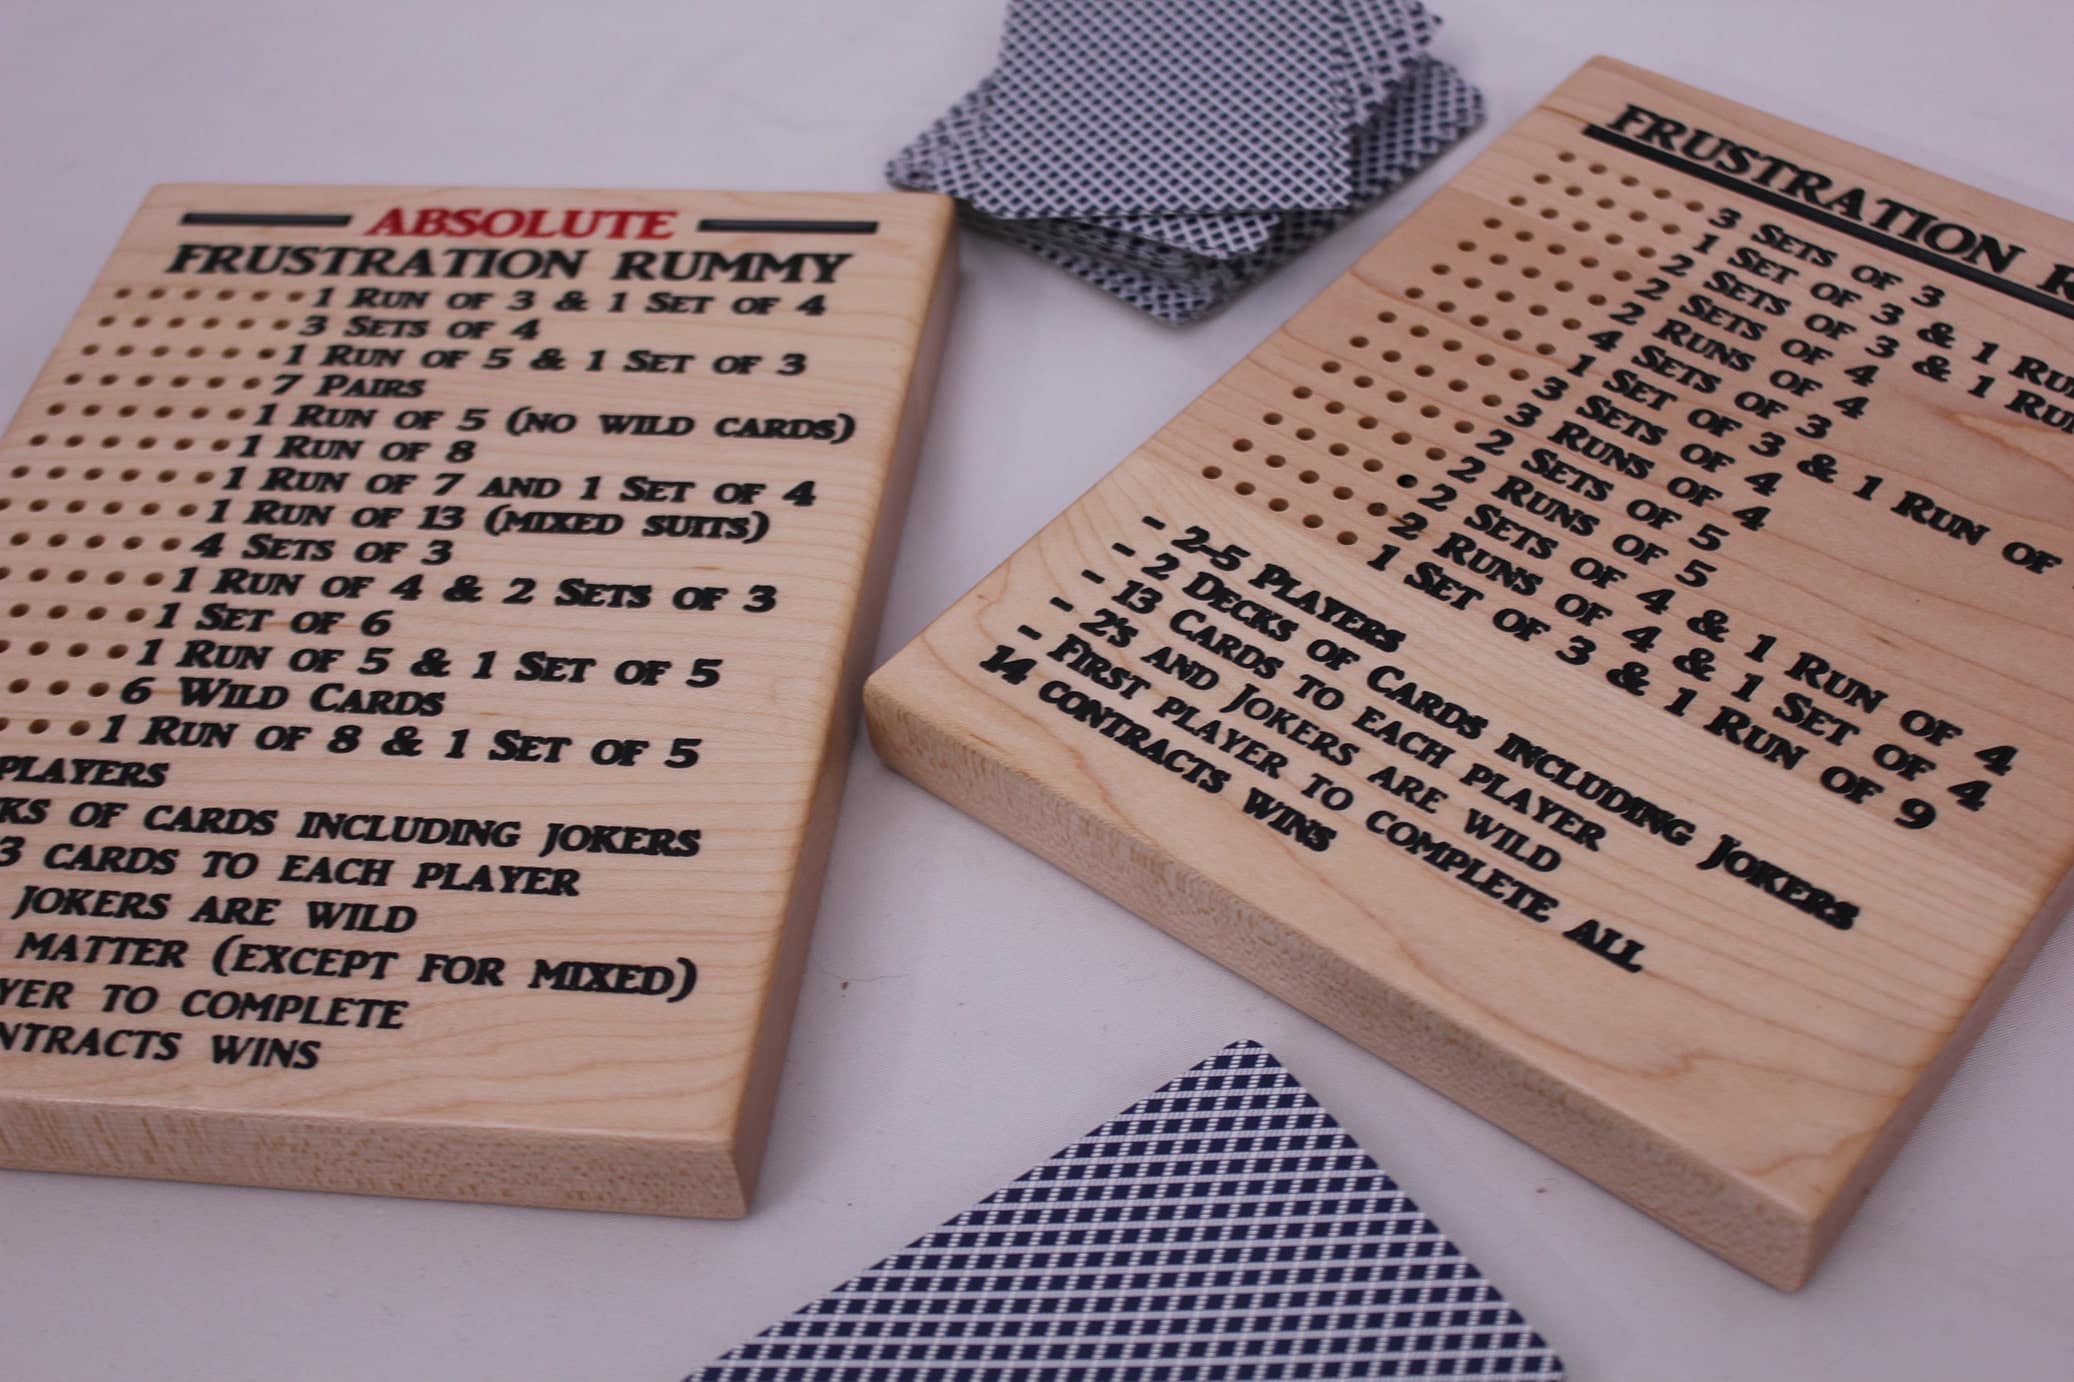 ABSOLUTE
FRUSTRATION RUMMY
1 RUN OF 3 & 1 SET OF 4
3 SETS OF 4
1 RUN OF 5 & 1 SET OF 3
7 PAIRS
1 RUN OF 5 (NO WILD CARDS)
1 RUN OF 8
1 RUN OF 7 AND 1 SET OF 4
1 RUN OF 13 (MIXED SUITS)
4 SETS OF 3
1 RUN OF 4 & 2 SETS OF 3
1 SET OF 6
1 RUN OF 5 & 1 SET OF 5
6 WILD CARDS
1 RUN OF 8 & 1 SET OF 5
PLAYERS
KS OF CARDS INCLUDING JOKERS
3 CARDS TO EACH PLAYER
JOKERS ARE WILD
MATTER (EXCEPT FOR MIXED)
YER TO COMPLETE
NTRACTS WINS
FRUSTRATION R
3 SETS OF 3
1 SET OF 3 & 1 RU
2 SETS OF 3 & 1 RUN
2 SETS OF 4
2 RUNS OF 4
4 SETS OF 3
1 SET OF 3 & 1 RUN OF
3 SETS OF 4
3 RUNS OF 4
2 SETS OF 5
2 RUNS OF 5
2 SETS OF 4 & 1 RUN OF 4
2 RUNS OF 4 & 1 SET OF 4
1 SET OF 3 & 1 RUN OF 9
- 2-5 PLAYERS
- 2 DECKS OF CARDS INCLUDING JOKERS
- 13 CARDS TO EACH PLAYER
- 2'S AND JOKERS ARE WILD
- FIRST PLAYER TO COMPLETE ALL
14 CONTRACTS WINS